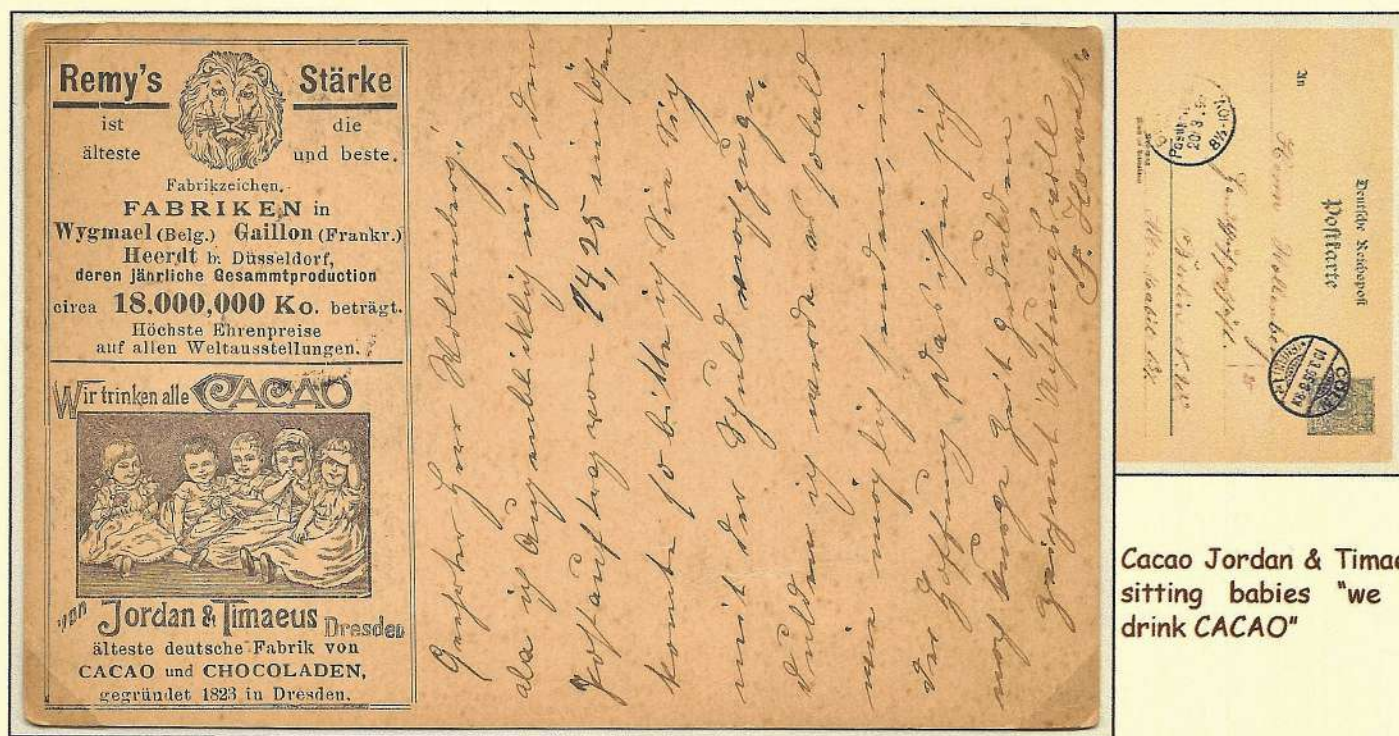 Remy's Stärke
ist die
älteste und beste.
Fabrikzeichen.
FABRIKEN in
Wygmael (Belg.) Gaillon (Frankr.)
Heerdt b. Düsseldorf,
deren jährliche Gesammtproduction
circa 18.000,000 Ko. beträgt.
Höchste Ehrenpreise
auf allen Weltausstellungen.
Wir trinken alle CACAO
von Jordan & Timaeus Dresden
älteste deutsche Fabrik von
CACAO und CHOCOLADEN,
gegründet 1823 in Dresden.
Geehrter Herr Wollenberg!
da ich Augenblicklich nicht den
Postauftrag von 14,25 einlösen
konnte so bitte ich Sie Sich
mit der Schuld
ich werde so sobald
wie möglich senden, in
der Hoffnung das Sie sich
noch kurze Zeit gedulden
zeichnet Achtungsvoll
Deutsche Reichspost
Postkarte
An
Herrn Wollenberg
Berlin N.W.
Cacao Jordan & Timae
sitting babies "we
drink CACAO"